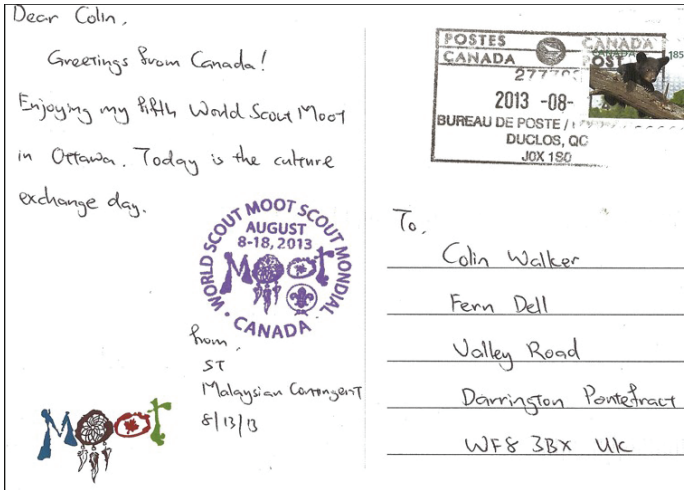 Dear Colin,
Greetings from Canada!
Enjoying my fifth World Scout Moot
in Ottawa. Today is the culture
exchange day.
WORLD SCOUT MOOT SCOUT MONDIAL
AUGUST
8-18, 2013
MOOT
• CANADA •
from,
ST
Malaysian Contingent
8/13/13
MOOT
POSTES CANADA
CANADA POST
2013 -08-
BUREAU DE POSTE /
DUCLOS, QC
J0X 1S0
CANADA 185
To,
Colin Walker
Fern Dell
Valley Road
Darrington Pontefract
WF8 3BX UK